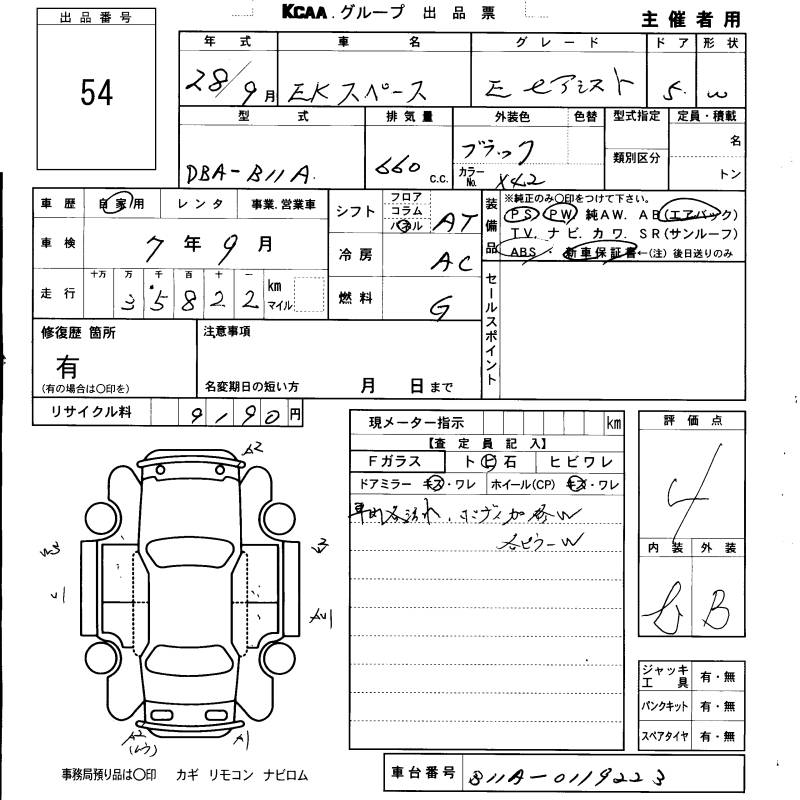 KCAA.グループ 出品票
主催者用
出品番号
54
年式 車名 グレード ドア 形状
28/9月 EKスペース E eアシスト 5. w
型式 排気量 外装色 色替 型式指定 定員・積載
DBA-B11A. 660 c.c. ブラック
カラーNo. X42
類別区分
名
トン
車歴 自家用 レンタ 事業.営業車
車検 7年9月
走行 十万 万 千 百 十 一
3 5 8 2 2 km マイル
シフト フロア コラム パネル AT
冷房 AC
燃料 G
装備品
※純正のみ○印をつけて下さい。
PS PW 純AW. AB(エアバック)
TV. ナビ. カワ. SR(サンルーフ)
ABS・新車保証書←(注) 後日送りのみ
セールスポイント
修復歴 箇所
有
(有の場合は○印を)
注意事項
名変期日の短い方 月 日まで
リサイクル料 9190円
現メーター指示 km
【査定員記入】
Fガラス ト ビ 石 ヒビワレ
ドアミラー キズ・ワレ ホイール(CP) キズ・ワレ
ボディ加修W
各ピラーW
評価点
4
内装 外装
B
A2
W3
W3
A2
A1
ジャッキ工具 有・無
パンクキット 有・無
スペアタイヤ 有・無
事務局預り品は○印 カギ リモコン ナビロム
車台番号 B11A-0119223